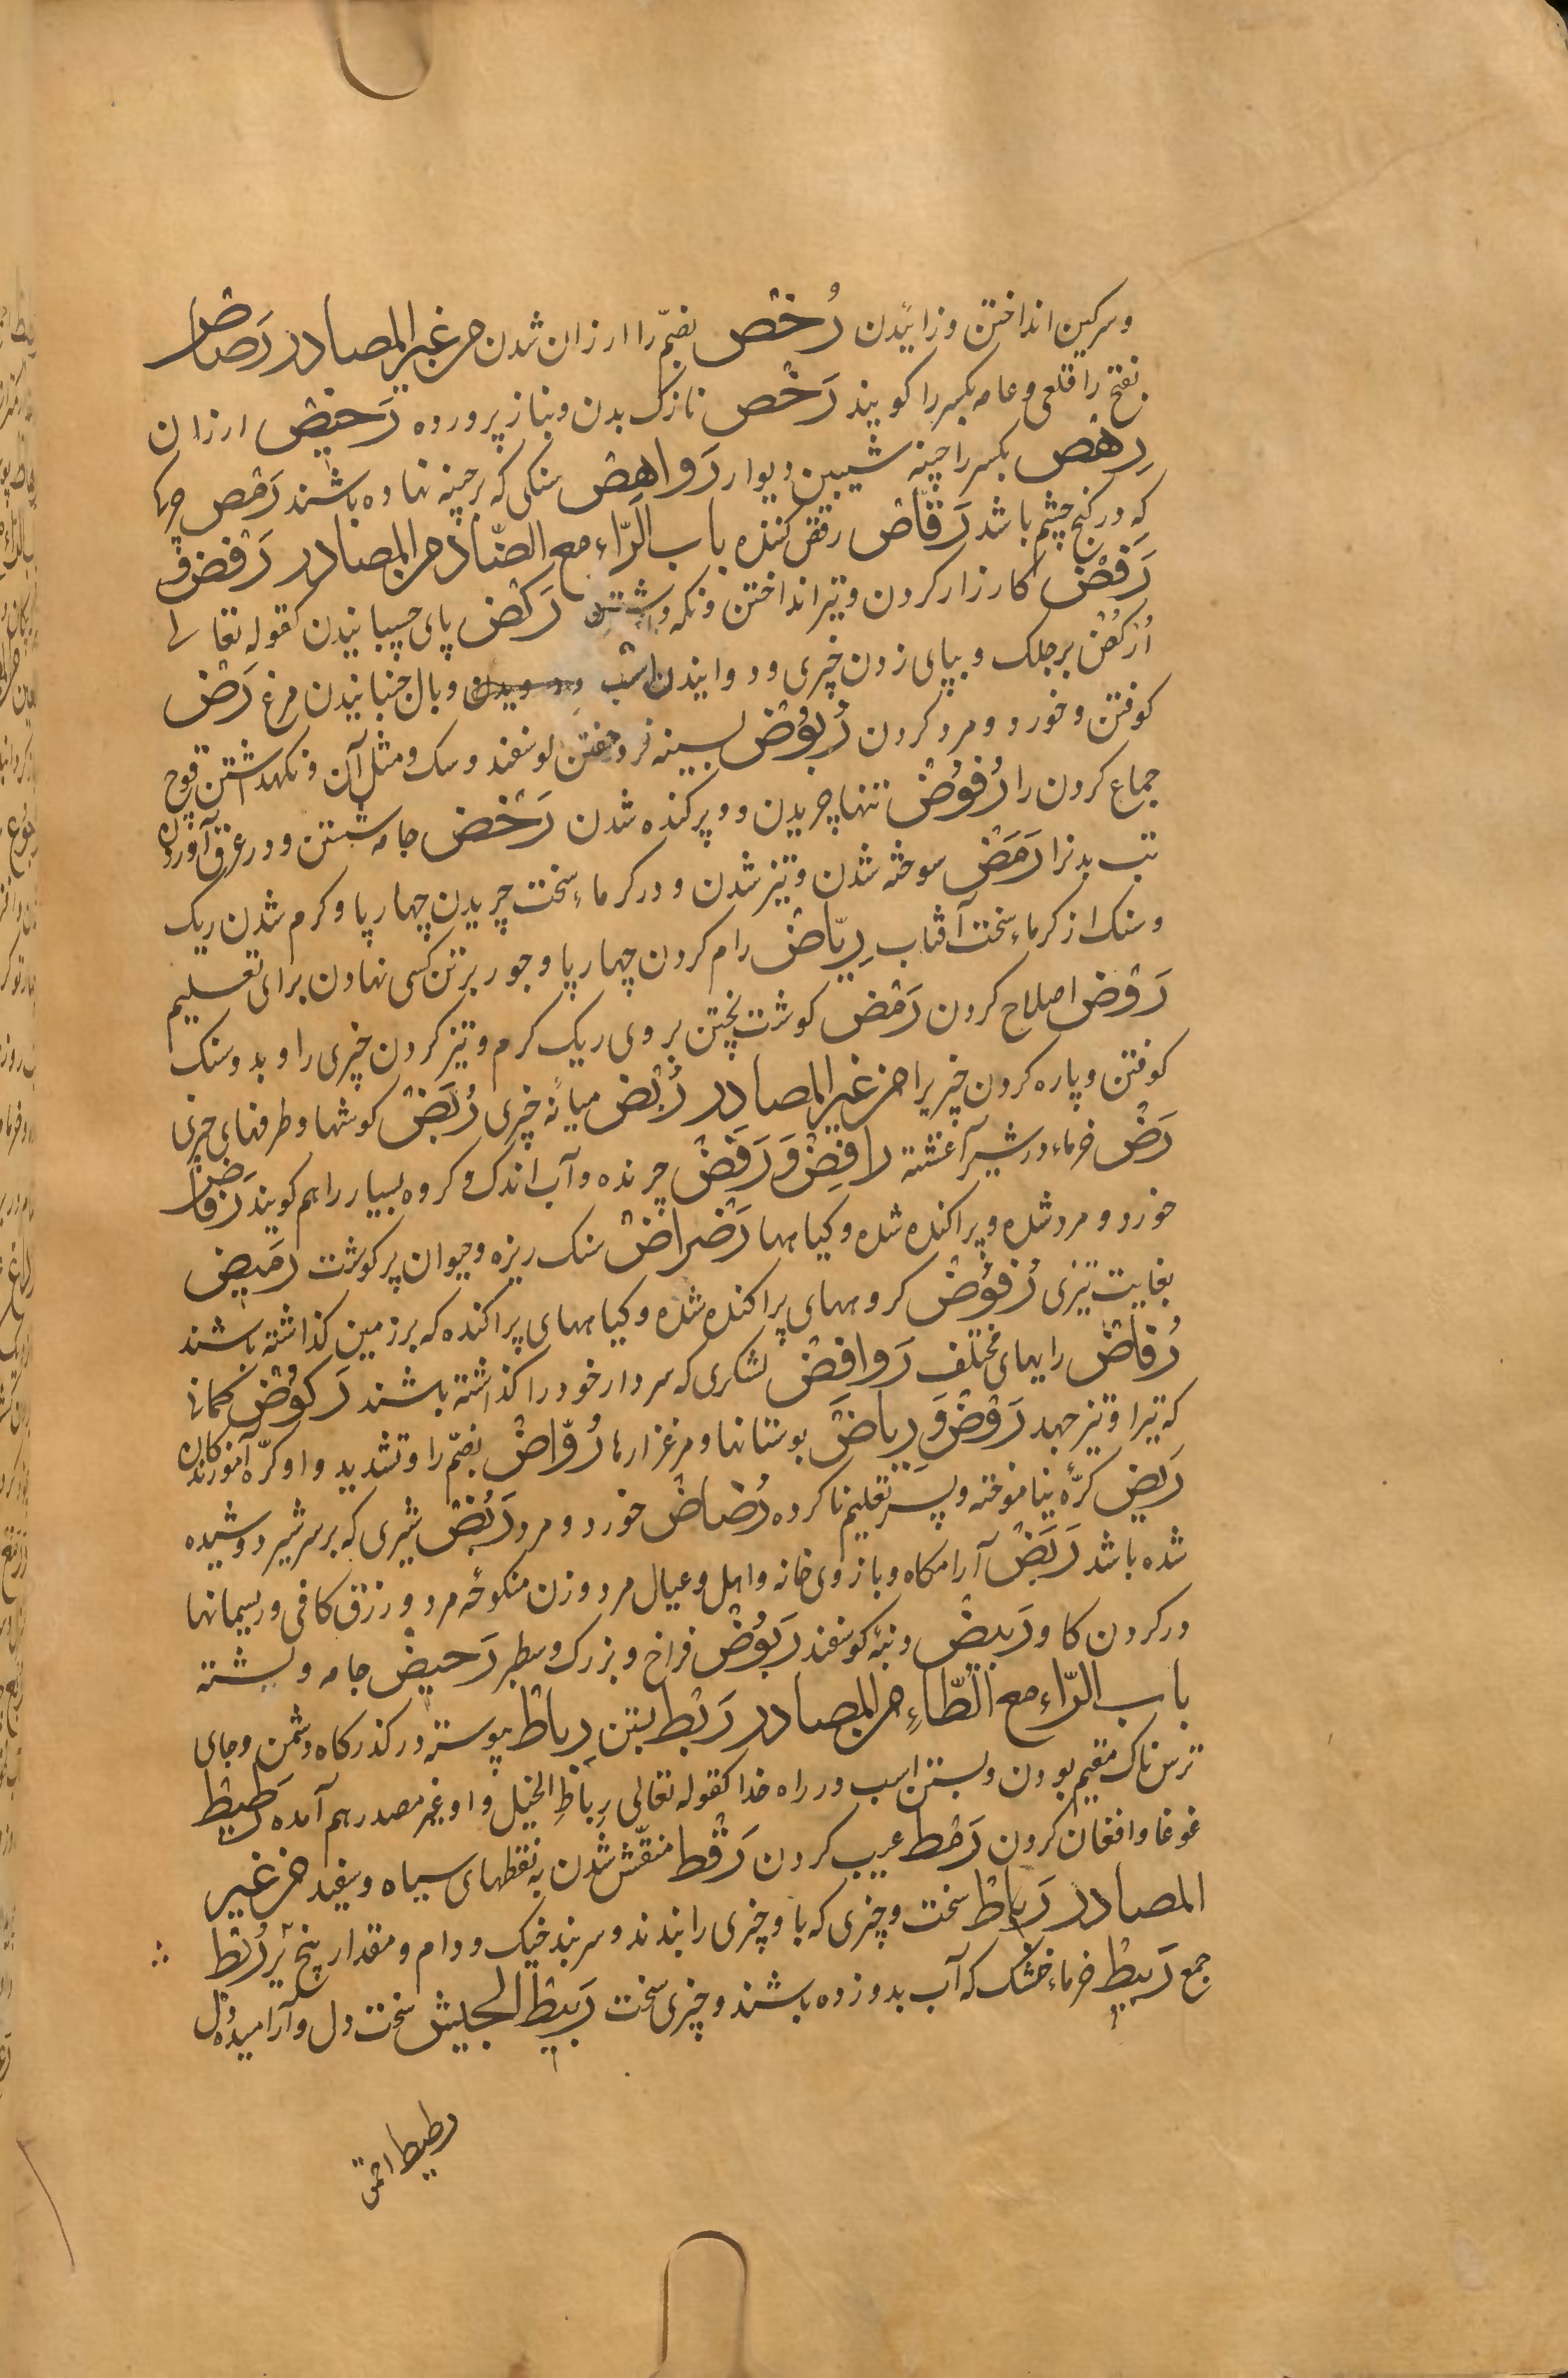 وسرکین انداختن وزائیدن رُخْص بضمّ را ارزان شدن من غیر المصادر رَصَاصْ
بفتح را قلعی و عامه بکسر را کویند رَخْص نازک بدن و بناز پرورده رَخیص ارزان
رِهْص بکسر را چینه شیبین دیوار رَوَاهِصْ سنکی که بر چینه نهاده باشند رَمَص چرک
که در کنج چشم باشد رَقّاص رقص کننده باب الرّاء مع الضّاد من المصادر رَفْض و
رَفَضْ کارزار کردن و تیر انداختن و نکه داشتن رَکْض پای جنبانیدن کقوله تعالی
اُرْکُضْ بِرِجلِک و بپای زدن چیزی و دوانیدن اسب و بال جنبانیدن مرغ رَضّ
کوفتن و خورد و مرد کردن رُبُوْضْ بسینه فروخفتن کوسفند و سک و مثل آن و نکهداشتن قوچ
جماع کردن را رُفُوْضْ تنها چریدن و پرکنده شدن رَحْض جامه شستن و در عرق آوردن
تب بدنرا رَمَضْ سوخته شدن و تیز شدن و در کرماء سخت چریدن چهارپا و کرم شدن ریک
و سنک از کرماء سخت آفتاب رِیَاضْ رام کردن چهارپا و جور بر تن کسی نهادن برای تعلیم
رَوْض اصلاح کردن رَمْض کوشت پختن بر روی ریک کرم و تیز کردن چیزی را و بدو سنک
کوفتن و پاره کردن چیزیرا من غیر المصادر رُبْض میانهٔ چیزی رُبَضْ کوشها و طرفهای چیزی
رَضّ خرماء در شیر آغشته رافِضْ وَ رَفَضْ چرنده و آب اندک و کروه بسیار را هم کویند رَفَاضْ
خورد و مرد شده و پراکنده شده و کیاهها رَضْرَاضْ سنک ریزه و حیوان پر کوشت رَمیض
بغایت تیزی رُفُوْضْ کروههای پراکنده شده و کیاههای پراکنده که بر زمین کذاشته باشند
رُفَاضْ راههای مختلف رَوَافِضْ لشکری که سردار خود را کذاشته باشند رَکُوْضْ کمانی
که تیر او تیز جهد رَوْضْ وَ رِیاضْ بوستانها و مرغزارها رُوّاضْ بضمّ را و تشدید واو کرّه آموزندکان
رَیّض کرّهٔ نیاموخته و پسر تعلیم ناکرده رُضَاضْ خورد و مرد رَبْضْ شیری که بر سر شیر دوشیده
شده باشد رَبَضْ آرامکاه و بازوی خانه و اهل و عیال مرد و زن منکوحهٔ مرد و رزق کافی و ریسمانها
در کردن کاو رَبِیضْ دنبهٔ کوسفند رَبُوْضْ فراخ و بزرک و سطبر رَحیضْ جامه و شسته
باب الرّاء مع الطّاء من المصادر رَبْط بستن رِباطْ پیوسته در کذرکاه دشمن و جای
ترسناک مقیم بودن و بستن اسب در راه خدا کقوله تعالی رِبَاطِ الخَیْل و او غیر مصدر هم آمده رَطِیطْ
غوغا و افغان کردن رَمْط عیب کردن رَقْط منقّش شدن به نقطهای سیاه و سفید من غیر
المصادر رِبَاطْ سخت و چیزی که با و چیزی را بندند و سربند خیک و دام و مقدار پنج تیر رُبُطْ
جمع رَبیطْ خرماء خشک که آب بدو زده باشند و چیزی سخت رَبیطْ الجایش سخت دل و آرامیده دل
رطیط احمق